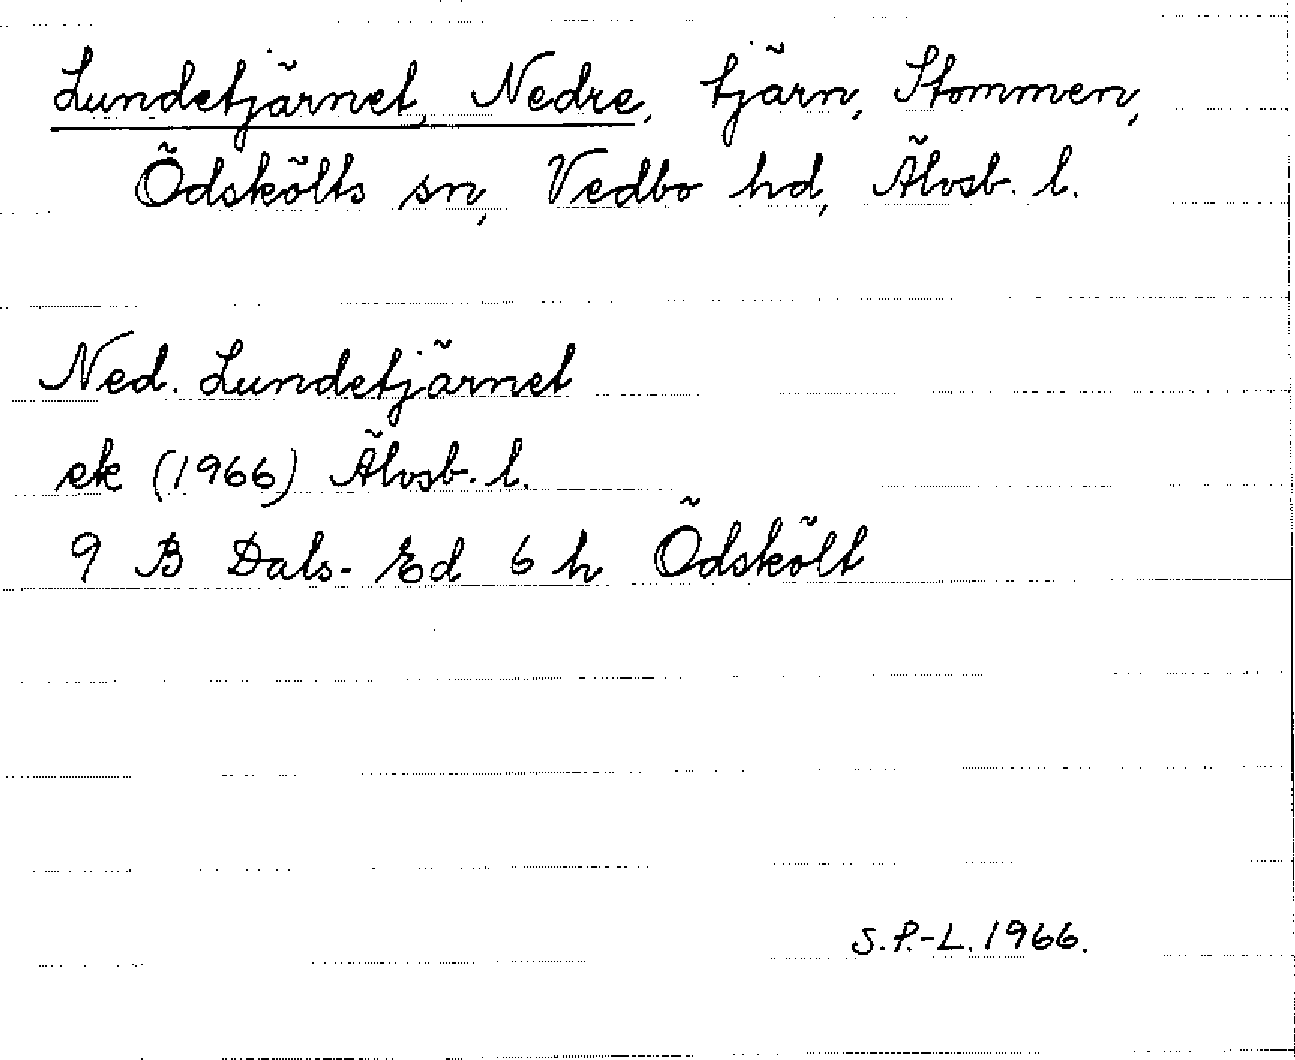 Lundetjärnet, Nedre, tjärn, Stommen,
Ödskölts sn, Vedbo hd, Älvsb. l.
Ned. Lundetjärnet
ek (1966) Älvsb. l.
9 B Dals-Ed 6 h Ödskölt
S.P.-L. 1966.